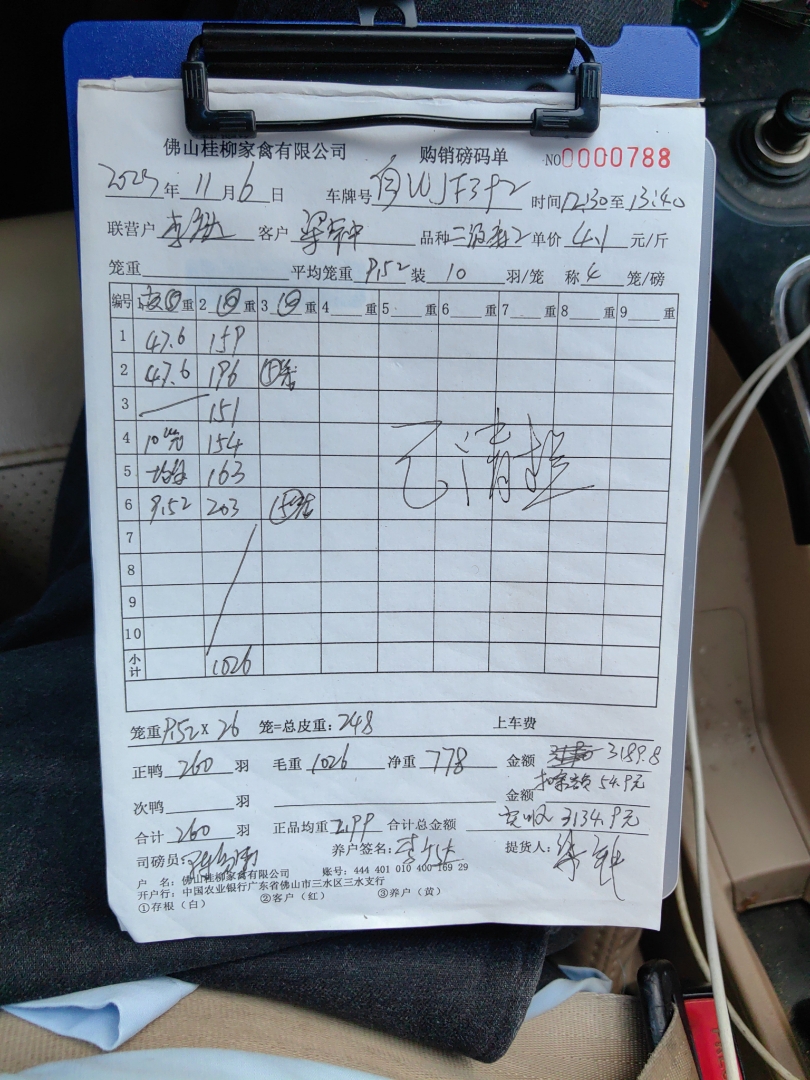 佛山桂柳家禽有限公司 购销磅码单 NO0000788
年 11 月 6 日 车牌号 WJF392 时间 12:30 至 13:40
联营户 客户 品种 单价 4.1 元/斤
笼重 平均笼重 9.52 装 10 羽/笼 称 4 笼/磅
编号 1 重 2 重 3 重 4 重 5 重 6 重 7 重 8 重 9 重
1 47.6 159
2 47.6 196
3 151
4 10 154
5 均 163
6 9.52 203
7
8
9
10
小计 1026
已清
笼重 9.52 × 26 笼=总皮重: 248 上车费
正鸭 260 羽 毛重 1026 净重 778 金额 3189.8
54.9元
次鸭 羽 金额
实收 3134.9元
合计 260 羽 正品均重 2.99 合计总金额
司磅员: 养户签名: 提货人:
户 名: 佛山桂柳家禽有限公司 账号: 444 401 010 400 169 29
开户行: 中国农业银行广东省佛山市三水区三水支行
①存根（白） ②客户（红） ③养户（黄）